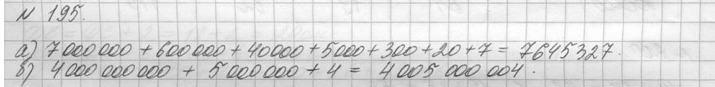 № 195.
а) 7 000 000 + 600 000 + 40 000 + 5 000 + 300 + 20 + 7 = 7 645 327.
б) 4 000 000 000 + 5 000 000 + 4 = 4 005 000 004.